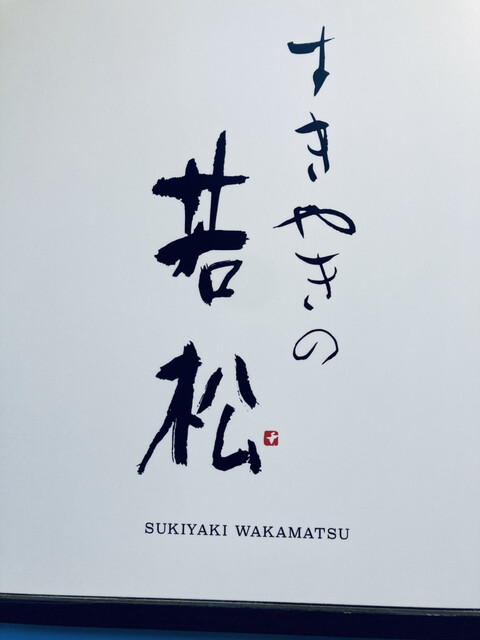 すきやきの
若松
SUKIYAKI WAKAMATSU